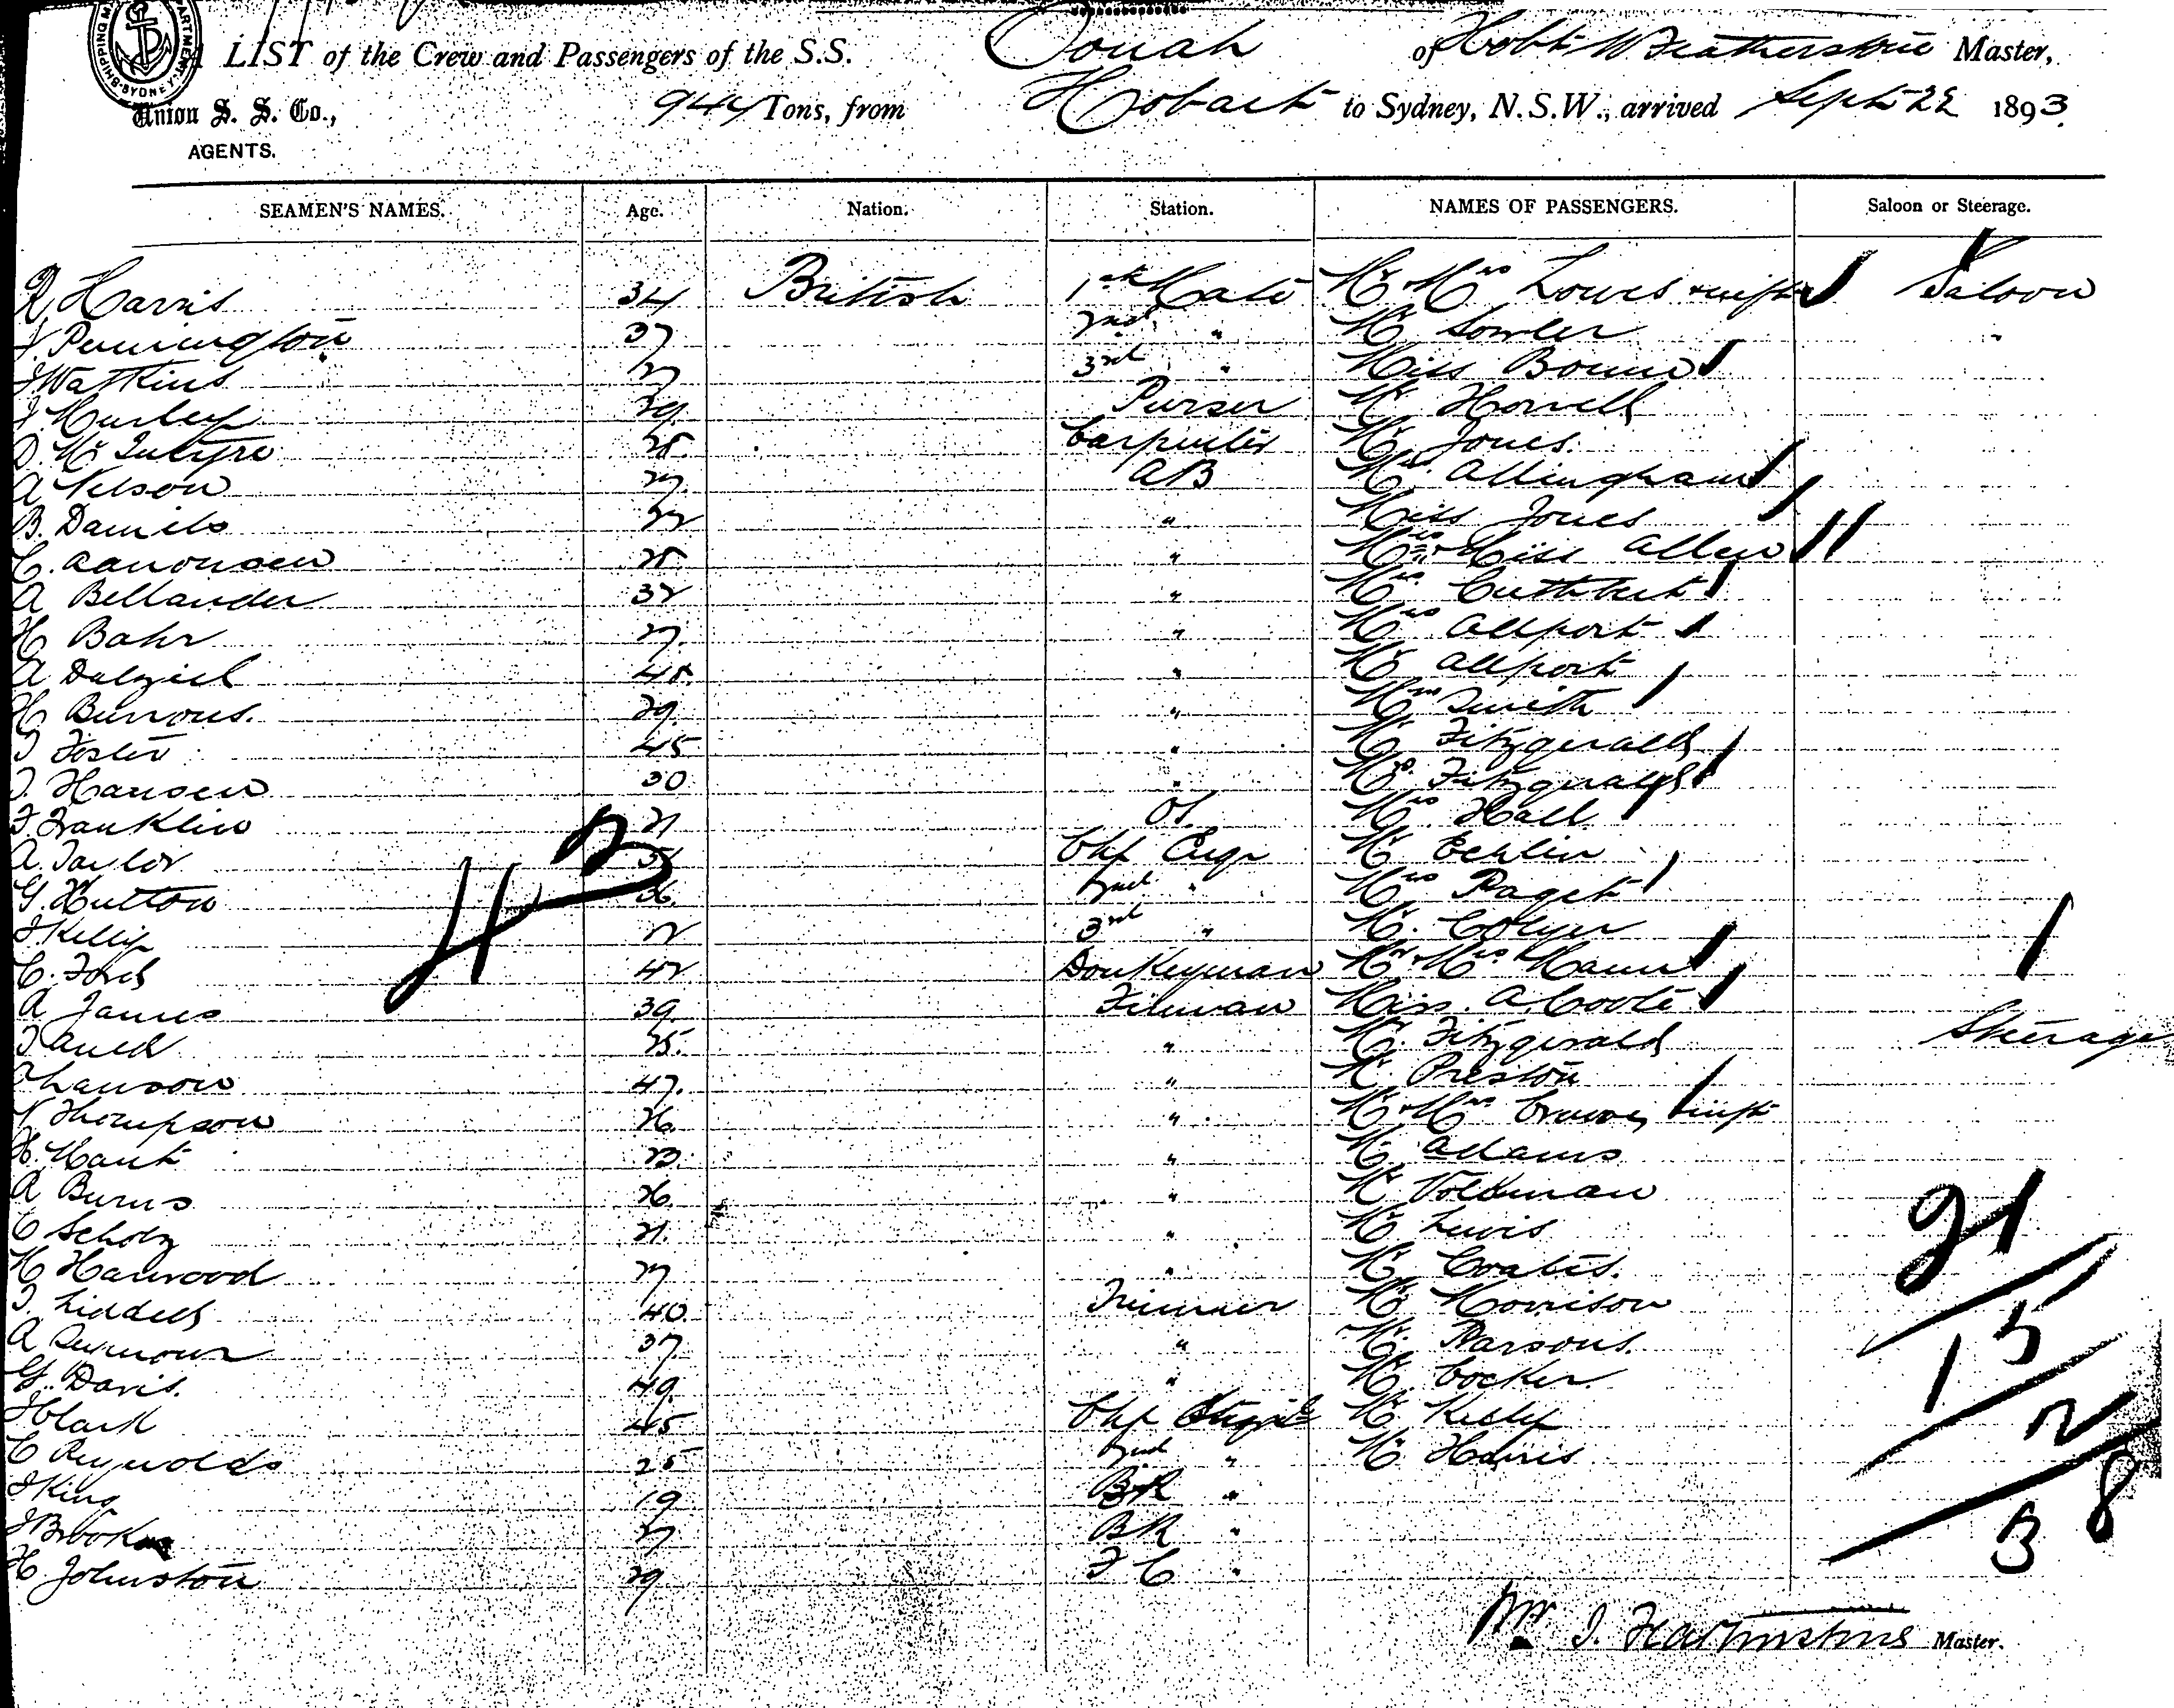 LIST of the Crew and Passengers of the S.S. Oonah of Hobt W Featherstone Master,
Union S. S. Co., 944 Tons, from Hobart to Sydney, N.S.W., arrived Sept 22 1893
AGENTS.
SEAMEN'S NAMES. Age. Nation. Station. NAMES OF PASSENGERS. Saloon or Steerage.
R Harris 34 British 1st Mate Mr & Mrs Lowes & inft Saloon
J. Pennington 37 2nd " Mr Sowler "
J Watkins 27 3rd " Miss Bourne
J Hurley 29 Purser Mr Horrell
D. McIntyre 25 Carpenter Mr Jones.
A Nelson 27 AB Mrs Allingham
B. Daniels 22 " Miss Jones
C. Aanonsen 25 " Mrs & Miss Allen
A Bellander 32 " Mrs Cuthbert
H Bahr 27 " Mrs Allport
A Dalziel 45 " Mr Allport
H Burrows. 29 " Mrs Smith
J Foster 45 " Mr Fitzgerald
J. Hansen 30 " Mrs Fitzgerald
F. Franklin 21 OS. Mrs Hall
A. Taylor Chf Engr Mr Echlin
G. Hutton 36 2nd " Mrs Paget
J Kelly 22 3rd " Mr. Colyer
C. Ford 42 Donkeyman Mr & Mrs Mann
A James 39 Fireman Miss. A. Coote
J Auld 25. " Mr. Fitzgerald Steerage
Lawson 47. " Mr Preston
N Thompson 26. " Mr & Mrs Craven & inft
H. Mant 23. " Mr Adams
A Burns 26. " Mr Volkman
C Scholz 21. " Mr Lewis
H Harwood 27 " Mr Coates.
J. Liddell 40 Trimmer Mr Morrison
A Seymour 37 " Mr. Parsons.
G. Davis. 49 " Mr Cocker.
J Clark 45 Chf Mr Kelly
C Reynolds 25 2nd " Mr Harris
J King 19 BR "
J Brook 27 BR "
H Johnston 29 F C "
43
21
15
2
38
J. Featherstone Master.